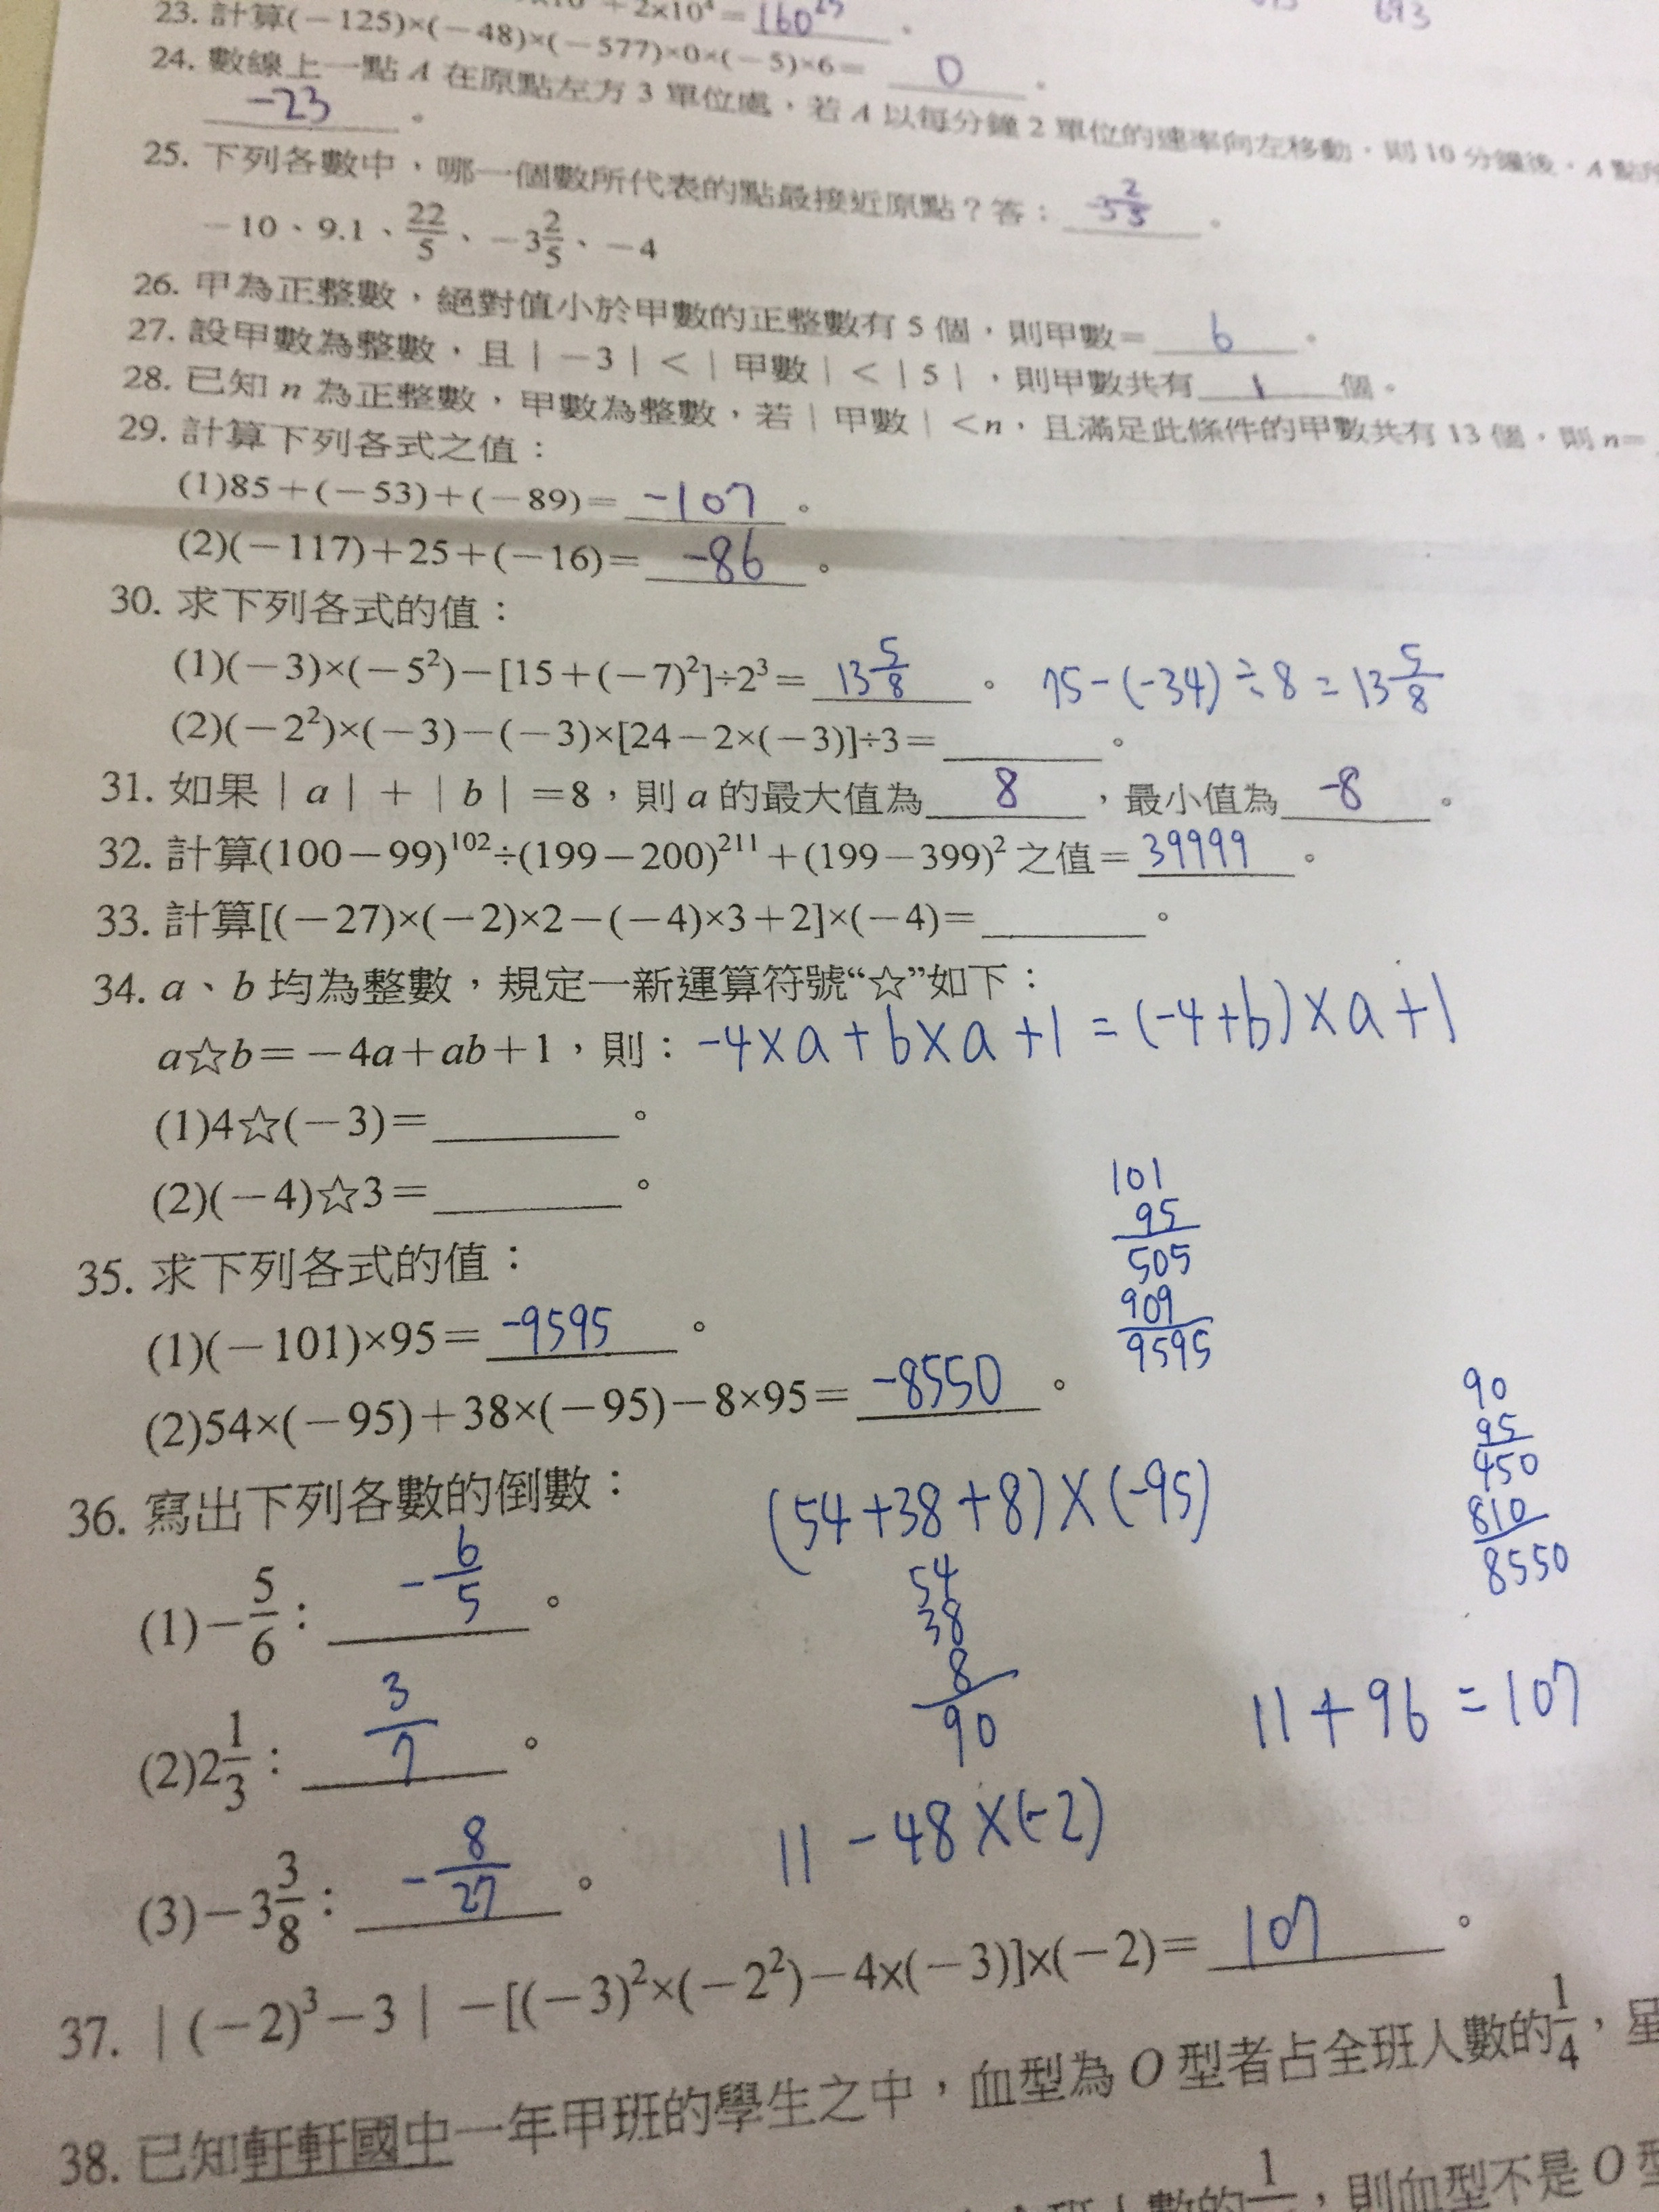 +2×10⁴=16025。
693
23. 計算(－125)×(－48)×(－577)×0×(－5)×6= 0 。
24. 數線上一點 A 在原點左方 3 單位處，若 A 以每分鐘 2 單位的速率向左移動，則 10 分鐘後，A 點所
-23 。
25. 下列各數中，哪一個數所代表的點最接近原點？答： -3 2/5 。
－10、9.1、22/5、－3 2/5、－4
26. 甲為正整數，絕對值小於甲數的正整數有 5 個，則甲數= 6 。
27. 設甲數為整數，且｜－3｜<｜甲數｜<｜5｜，則甲數共有 1 個。
28. 已知 n 為正整數，甲數為整數，若｜甲數｜<n，且滿足此條件的甲數共有 13 個，則 n=
29. 計算下列各式之值：
(1)85＋(－53)＋(－89)= -107 。
(2)(－117)＋25＋(－16)= -86 。
30. 求下列各式的值：
(1)(－3)×(－5²)－[15＋(－7)²]÷2³= 13 5/8 。 75-(-34)÷8=13 5/8
(2)(－2²)×(－3)－(－3)×[24－2×(－3)]÷3= 。
31. 如果｜a｜＋｜b｜=8，則 a 的最大值為 8 ，最小值為 -8 。
32. 計算(100－99)¹⁰²÷(199－200)²¹¹＋(199－399)² 之值= 39999 。
33. 計算[(－27)×(－2)×2－(－4)×3＋2]×(－4)= 。
34. a、b 均為整數，規定一新運算符號“☆”如下：
a☆b=－4a＋ab＋1，則： -4×a+b×a+1=(-4+b)×a+1
(1)4☆(－3)= 。
(2)(－4)☆3= 。
101
95
505
909
9595
35. 求下列各式的值：
(1)(－101)×95= -9595 。
(2)54×(－95)＋38×(－95)－8×95= -8550 。
90
95
450
810
8550
36. 寫出下列各數的倒數：
(54+38+8)×(-95)
54
38
8
90
(1)－5/6： -6/5 。
(2)2 1/3： 3/7 。
11+96=107
(3)－3 3/8： -8/27 。
11-48×(-2)
37. ｜(－2)³－3｜－[(－3)²×(－2²)－4×(－3)]×(－2)= 107 。
38. 已知軒軒國中一年甲班的學生之中，血型為 O 型者占全班人數的1/4，星
班人數的1，則血型不是 O 型